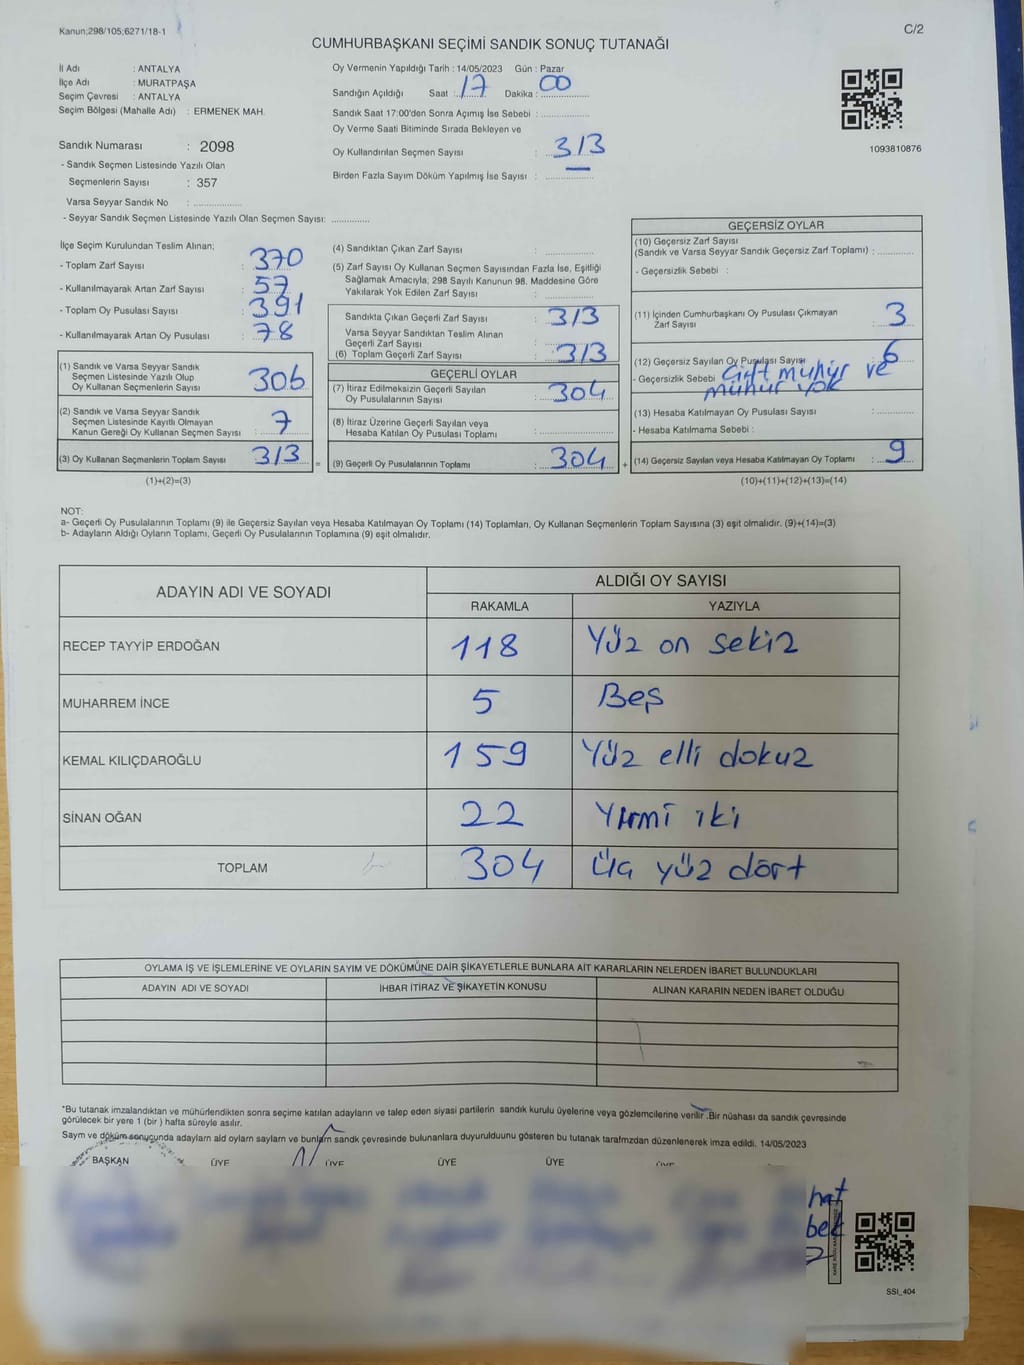 Kanun;298/105;6271/18-1
C/2
CUMHURBAŞKANI SEÇİMİ SANDIK SONUÇ TUTANAĞI
İl Adı : ANTALYA
İlçe Adı : MURATPAŞA
Seçim Çevresi : ANTALYA
Seçim Bölgesi (Mahalle Adı) : ERMENEK MAH.
Sandık Numarası : 2098
- Sandık Seçmen Listesinde Yazılı Olan
Seçmenlerin Sayısı : 357
Varsa Seyyar Sandık No : ..............
- Seyyar Sandık Seçmen Listesinde Yazılı Olan Seçmen Sayısı: ..............
Oy Vermenin Yapıldığı Tarih : 14/05/2023 Gün : Pazar
Sandığın Açıldığı Saat : 17 Dakika : 00
Sandık Saat 17:00'den Sonra Açımış İse Sebebi : ..............
Oy Verme Saati Bitiminde Sırada Bekleyen ve
Oy Kullandırılan Seçmen Sayısı : 313
Birden Fazla Sayım Döküm Yapılmış İse Sayısı : ..............
1093810876
İlçe Seçim Kurulundan Teslim Alınan;
- Toplam Zarf Sayısı : 370
- Kullanılmayarak Artan Zarf Sayısı : 57
- Toplam Oy Pusulası Sayısı : 391
- Kullanılmayarak Artan Oy Pusulası : 78
(1) Sandık ve Varsa Seyyar Sandık
Seçmen Listesinde Yazılı Olup
Oy Kullanan Seçmenlerin Sayısı 306
(2) Sandık ve Varsa Seyyar Sandık
Seçmen Listesinde Kayıtlı Olmayan
Kanun Gereği Oy Kullanan Seçmen Sayısı : 7
(3) Oy Kullanan Seçmenlerin Toplam Sayısı 313
(1)+(2)=(3)
(4) Sandıktan Çıkan Zarf Sayısı : ..............
(5) Zarf Sayısı Oy Kullanan Seçmen Sayısından Fazla İse, Eşitliği
Sağlamak Amacıyla; 298 Sayılı Kanunun 98. Maddesine Göre
Yakılarak Yok Edilen Zarf Sayısı : ..............
Sandıkta Çıkan Geçerli Zarf Sayısı : 313
Varsa Seyyar Sandıktan Teslim Alınan
Geçerli Zarf Sayısı : ..............
(6) Toplam Geçerli Zarf Sayısı : 313
GEÇERLİ OYLAR
(7) İtiraz Edilmeksizin Geçerli Sayılan
Oy Pusulalarının Sayısı : 304
(8) İtiraz Üzerine Geçerli Sayılan veya
Hesaba Katılan Oy Pusulası Toplamı : ..............
= (9) Geçerli Oy Pusulalarının Toplamı : 304 +
GEÇERSİZ OYLAR
(10) Geçersiz Zarf Sayısı
(Sandık ve Varsa Seyyar Sandık Geçersiz Zarf Toplamı) : ..............
- Geçersizlik Sebebi :
(11) İçinden Cumhurbaşkanı Oy Pusulası Çıkmayan
Zarf Sayısı : 3
(12) Geçersiz Sayılan Oy Pusulası Sayısı : 6
- Geçersizlik Sebebi Çift mühür ve
mühür yok
(13) Hesaba Katılmayan Oy Pusulası Sayısı : ..............
- Hesaba Katılmama Sebebi :
(14) Geçersiz Sayılan veya Hesaba Katılmayan Oy Toplamı : 9
(10)+(11)+(12)+(13)=(14)
NOT:
a- Geçerli Oy Pusulalarının Toplamı (9) ile Geçersiz Sayılan veya Hesaba Katılmayan Oy Toplamı (14) Toplamları, Oy Kullanan Seçmenlerin Toplam Sayısına (3) eşit olmalıdır. (9)+(14)=(3)
b- Adayların Aldığı Oyların Toplamı, Geçerli Oy Pusulalarının Toplamına (9) eşit olmalıdır.
ADAYIN ADI VE SOYADI
ALDIĞI OY SAYISI
RAKAMLA YAZIYLA
RECEP TAYYİP ERDOĞAN 118 Yüz on sekiz
MUHARREM İNCE 5 Beş
KEMAL KILIÇDAROĞLU 159 Yüz elli dokuz
SİNAN OĞAN 22 Yirmi iki
TOPLAM 304 Üç yüz dört
OYLAMA İŞ VE İŞLEMLERİNE VE OYLARIN SAYIM VE DÖKÜMÜNE DAİR ŞİKAYETLERLE BUNLARA AİT KARARLARIN NELERDEN İBARET BULUNDUKLARI
ADAYIN ADI VE SOYADI İHBAR İTİRAZ VE ŞİKAYETİN KONUSU ALINAN KARARIN NEDEN İBARET OLDUĞU
*Bu tutanak imzalandıktan ve mühürlendikten sonra seçime katılan adayların ve talep eden siyasi partilerin sandık kurulu üyelerine veya gözlemcilerine verilir .Bir nüshası da sandık çevresinde
görülecek bir yere 1 (bir ) hafta süreyle asılır.
Sayım ve döküm sonuçunda adayların ald oyların sayları ve bunların sandık çevresinde bulunanlara duyurulduunu gösteren bu tutanak tarafmzdan düzenlenerek imza edildi. 14/05/2023
BAŞKAN ÜYE ÜYE ÜYE ÜYE ÜYE
hat
bek
SSI_404